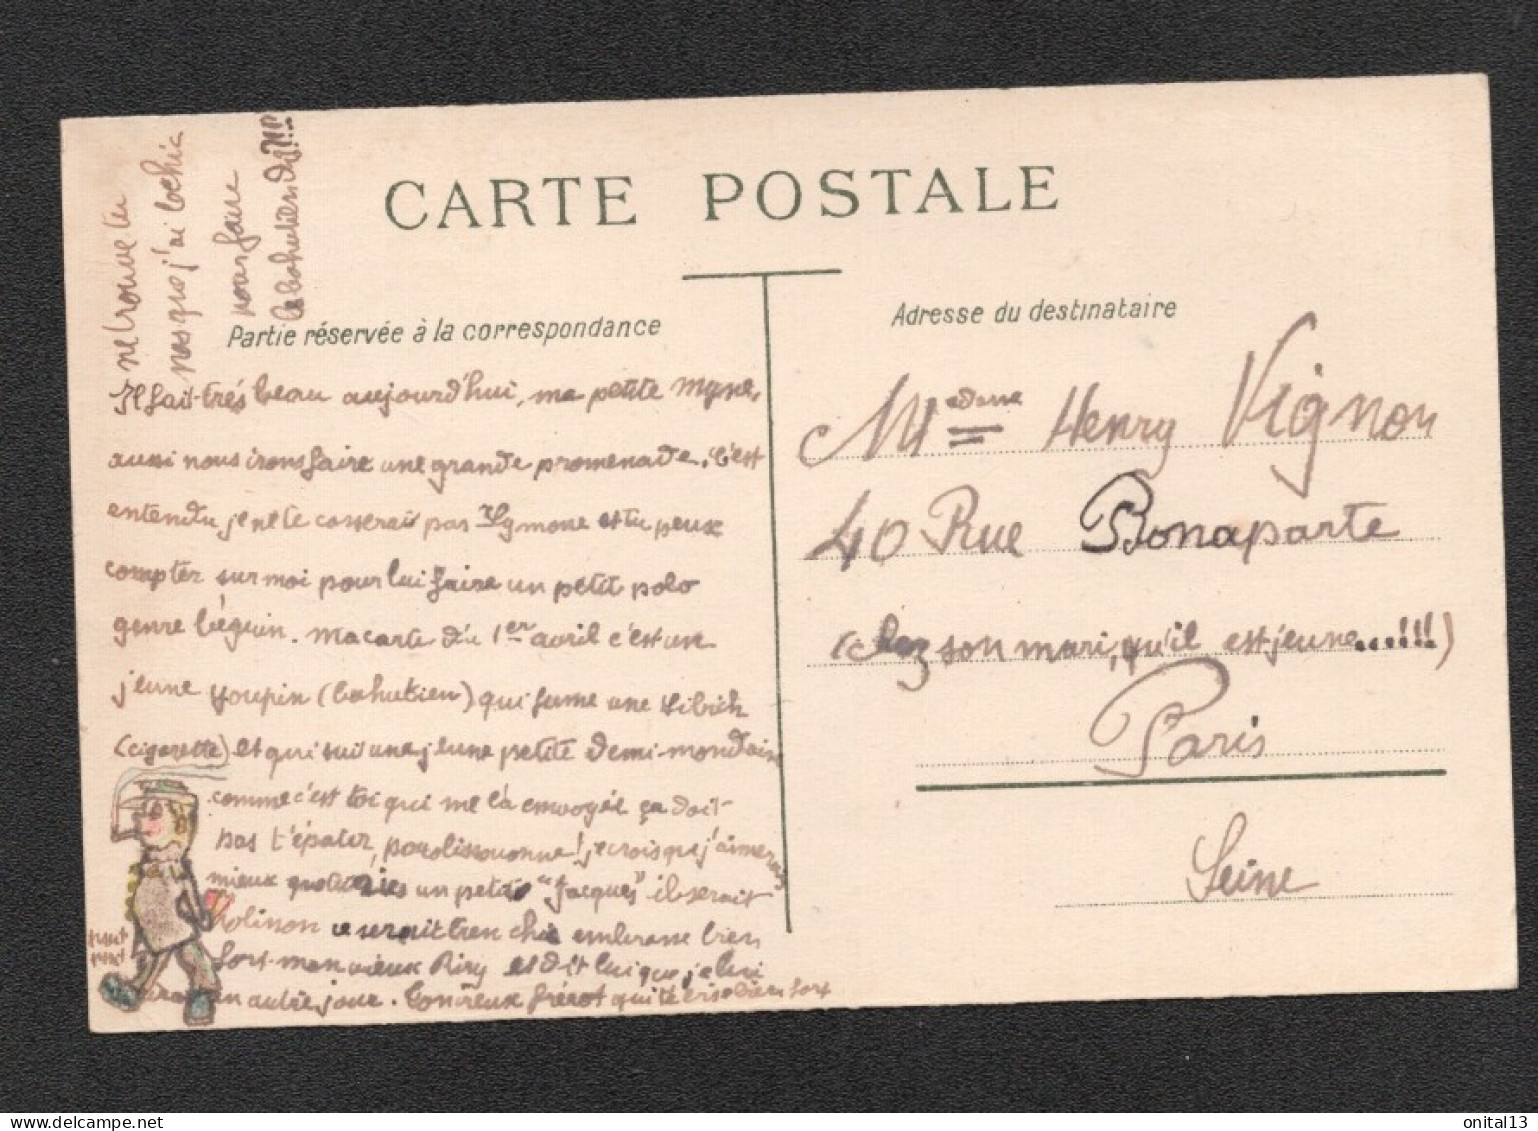 CARTE POSTALE
Partie réservée à la correspondance
Adresse du destinataire
ne trouve tu
pas que j'ai lochic
pour faire
les bahutiens dis!!!
Il fait très beau aujourd'hui, ma petite Mgne,
aussi nous irons faire une grande promenade. C'est
entendu je ne te casserais pas Symone et tu peux
compter sur moi pour lui faire un petit polo
genre béguin. Ma carte du 1er avril c'est une
jeune youpin (bahutien) qui fume une sibich
(cigarette) et qui suit une jeune petite demi-mondaine
comme c'est toi qui me l'a envoyée ça doit
pas t'épater, je crois que j'aimerais
mieux un petit "Jacques" il serait
ce serait très chic embrasse bien
fort mon vieux Riry et dit lui que je lui
un autre jour. Ton vieux frérot qui t'
Madame Henry Vignon
40 Rue Bonaparte
(chez son mari, qu'il est jeune...!!!)
Paris
Seine
onital13